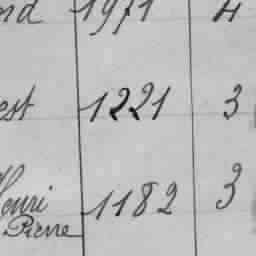 1971 4
est 1221 3
Henri 1182 3
Pierre